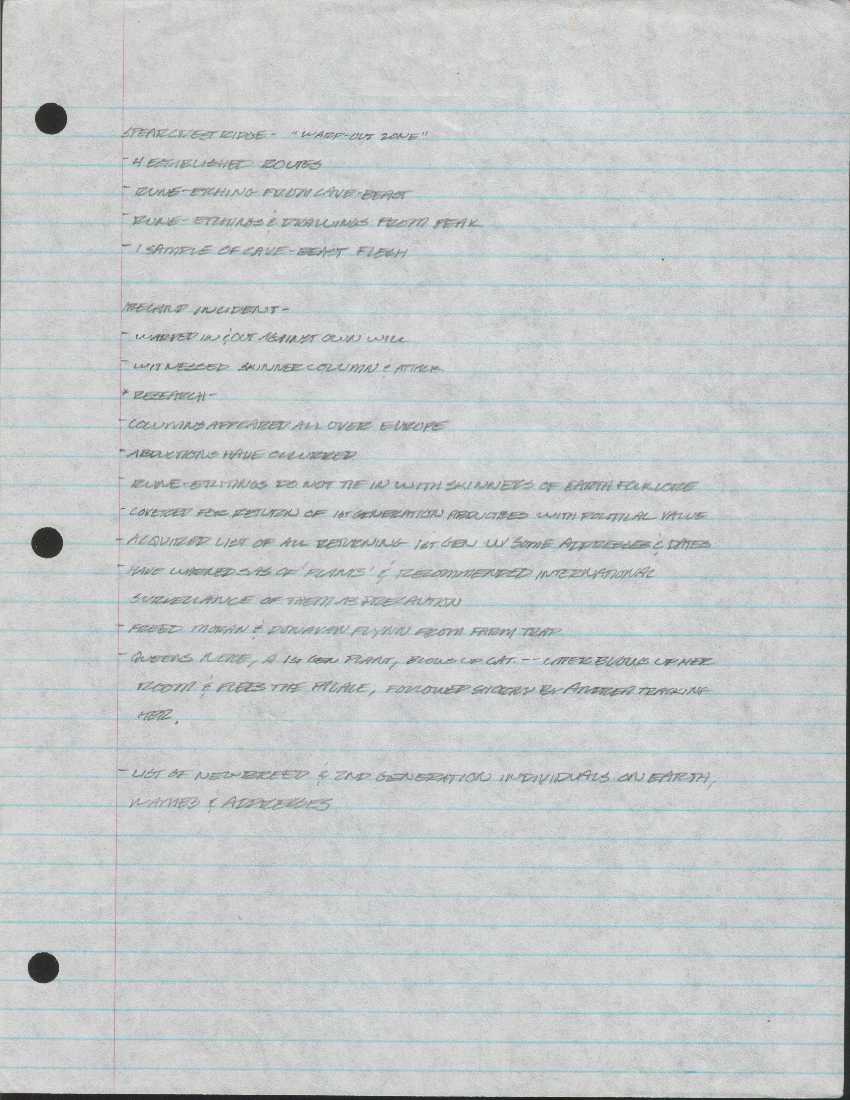 SPEARCREST RIDGE - "WARP-OUT ZONE"
- 4 ESTABLISHED ROUTES
- RUNE-ETCHING FROM CAVE-BEAST
- RUNE-ETCHINGS & DRAWINGS FROM PEAK
- 1 SAMPLE OF CAVE-BEAST FLESH
INCIDENT -
- WARPED IN & OUT AGAINST OWN WILL
- WITNESSED SKINNER COLUMN & ATTACK
* RESEARCH -
- COLUMNS APPEARED ALL OVER EUROPE
- ABDUCTIONS HAVE OCCURRED
- RUNE-ETCHINGS DO NOT TIE IN WITH SKINNERS OF EARTH FOLKLORE
- COVERED FOR RETURN OF 1ST GENERATION ABDUCTEES WITH POLITICAL VALUE
- ACQUIRED LIST OF ALL RETURNING 1ST GEN W/ SOME ADDRESSES & DATES
- HAVE WARNED SAS OF 'PLANTS' & RECOMMENDED INTERNATIONAL
SURVEILLANCE OF THEM AS PRECAUTION
- FREED MORAN & DONAVAN FLYNN FROM FARM TRAP
- QUEENS NIECE, A 1ST GEN PLANT, BLOWS UP CAT -- LATER BLOWS UP HER
ROOM & FLEES THE PALACE, FOLLOWED BY ANDREA TRACKING
HER.
- LIST OF NEWBREED & 2ND GENERATION INDIVIDUALS ON EARTH,
NAMES & ADDRESSES